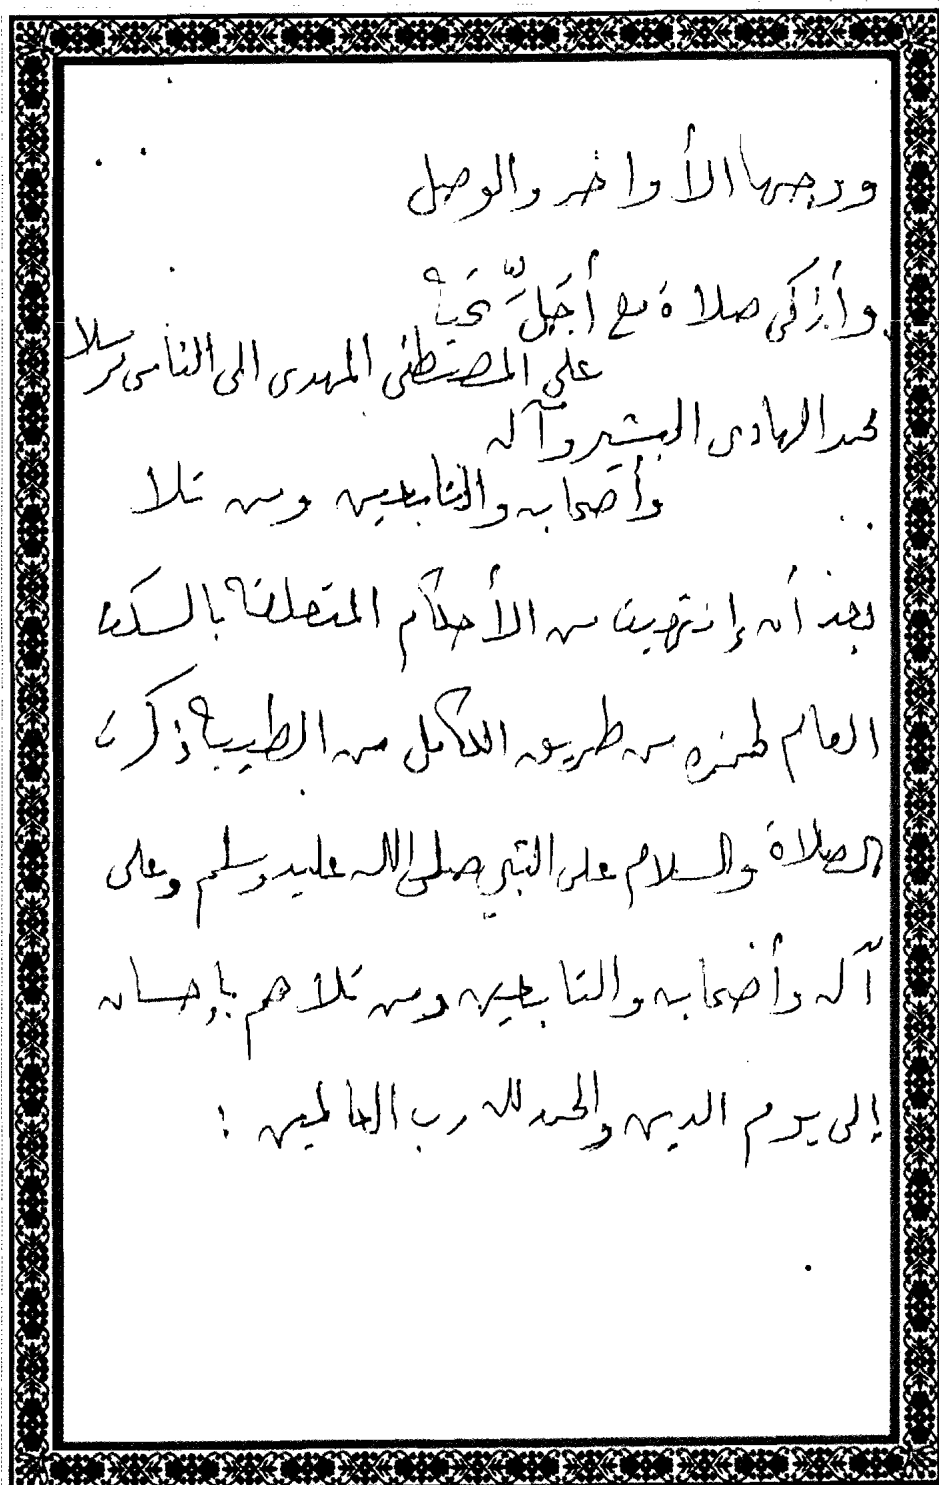 ووجها الأواخر والوصل
وأزكى صلاة مع أجَلِّ تحية
على المصطفى المهدى الى الناس مرسلا
محمد الهادى البشير وآله
وأصحابه والتابعين ومن تلا
بعد أن إنتهيت من الأحكام المتعلقة بالسكت
العام لحمزه من طريق الكامل من الطيبة ذكرت
الصلاة والسلام على النبي صلى الله عليه وسلم وعلى
آله وأصحابه والتابعين ومن تلاهم بإحسان
إلى يوم الدين والحمد لله رب العالمين :